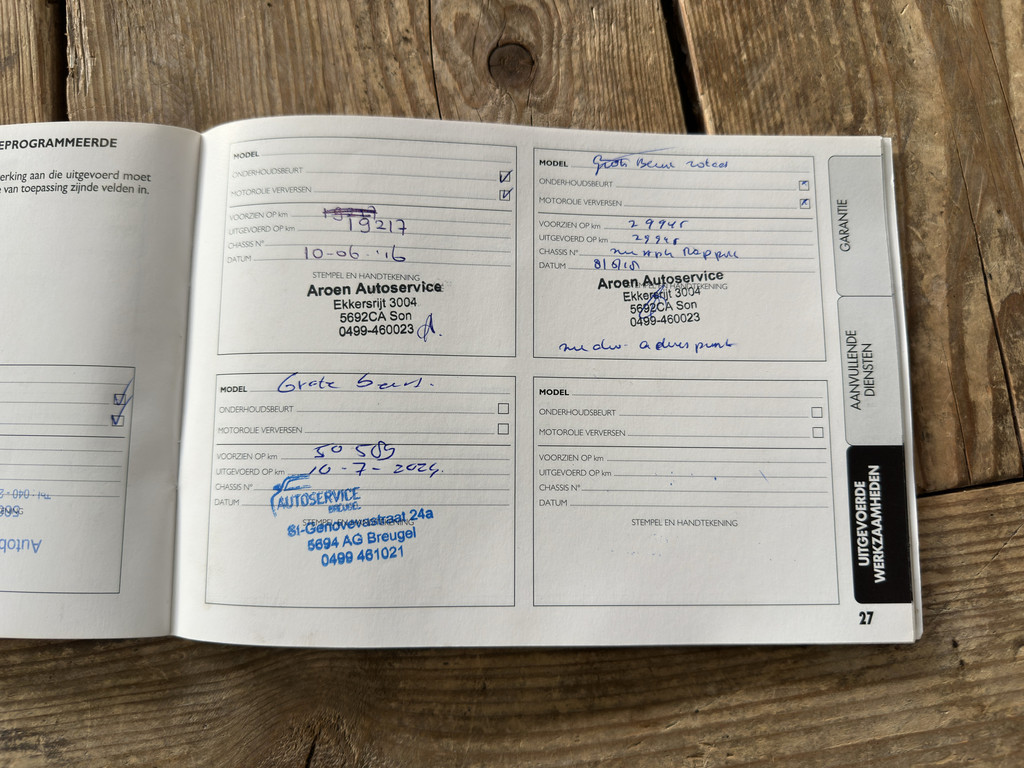 EPROGRAMMEERDE
erking aan die uitgevoerd moet
e van toepassing zijnde velden in.
MODEL
ONDERHOUDSBEURT
MOTOROLIE VERVERSEN
VOORZIEN OP km
UITGEVOERD OP km 19217
CHASSIS N°
DATUM 10-06-'16
STEMPEL EN HANDTEKENING
Aroen Autoservice
Ekkersrijt 3004
5692CA Son
0499-460023
MODEL Grote Beurt
ONDERHOUDSBEURT
MOTOROLIE VERVERSEN
VOORZIEN OP km 29945
UITGEVOERD OP km 29945
CHASSIS N°
DATUM
STEMPEL EN HANDTEKENING
Aroen Autoservice
Ekkersrijt 3004
5692CA Son
0499-460023
MODEL Grote beurt.
ONDERHOUDSBEURT
MOTOROLIE VERVERSEN
VOORZIEN OP km 50 589
UITGEVOERD OP km 10-7-2024.
CHASSIS N°
DATUM
AUTOSERVICE
BREUGEL
STEMPEL EN HANDTEKENING
St-Genovevastraat 24a
5694 AG Breugel
0499 461021
MODEL
ONDERHOUDSBEURT
MOTOROLIE VERVERSEN
VOORZIEN OP km
UITGEVOERD OP km
CHASSIS N°
DATUM
STEMPEL EN HANDTEKENING
GARANTIE
AANVULLENDE
DIENSTEN
UITGEVOERDE
WERKZAAMHEDEN
27